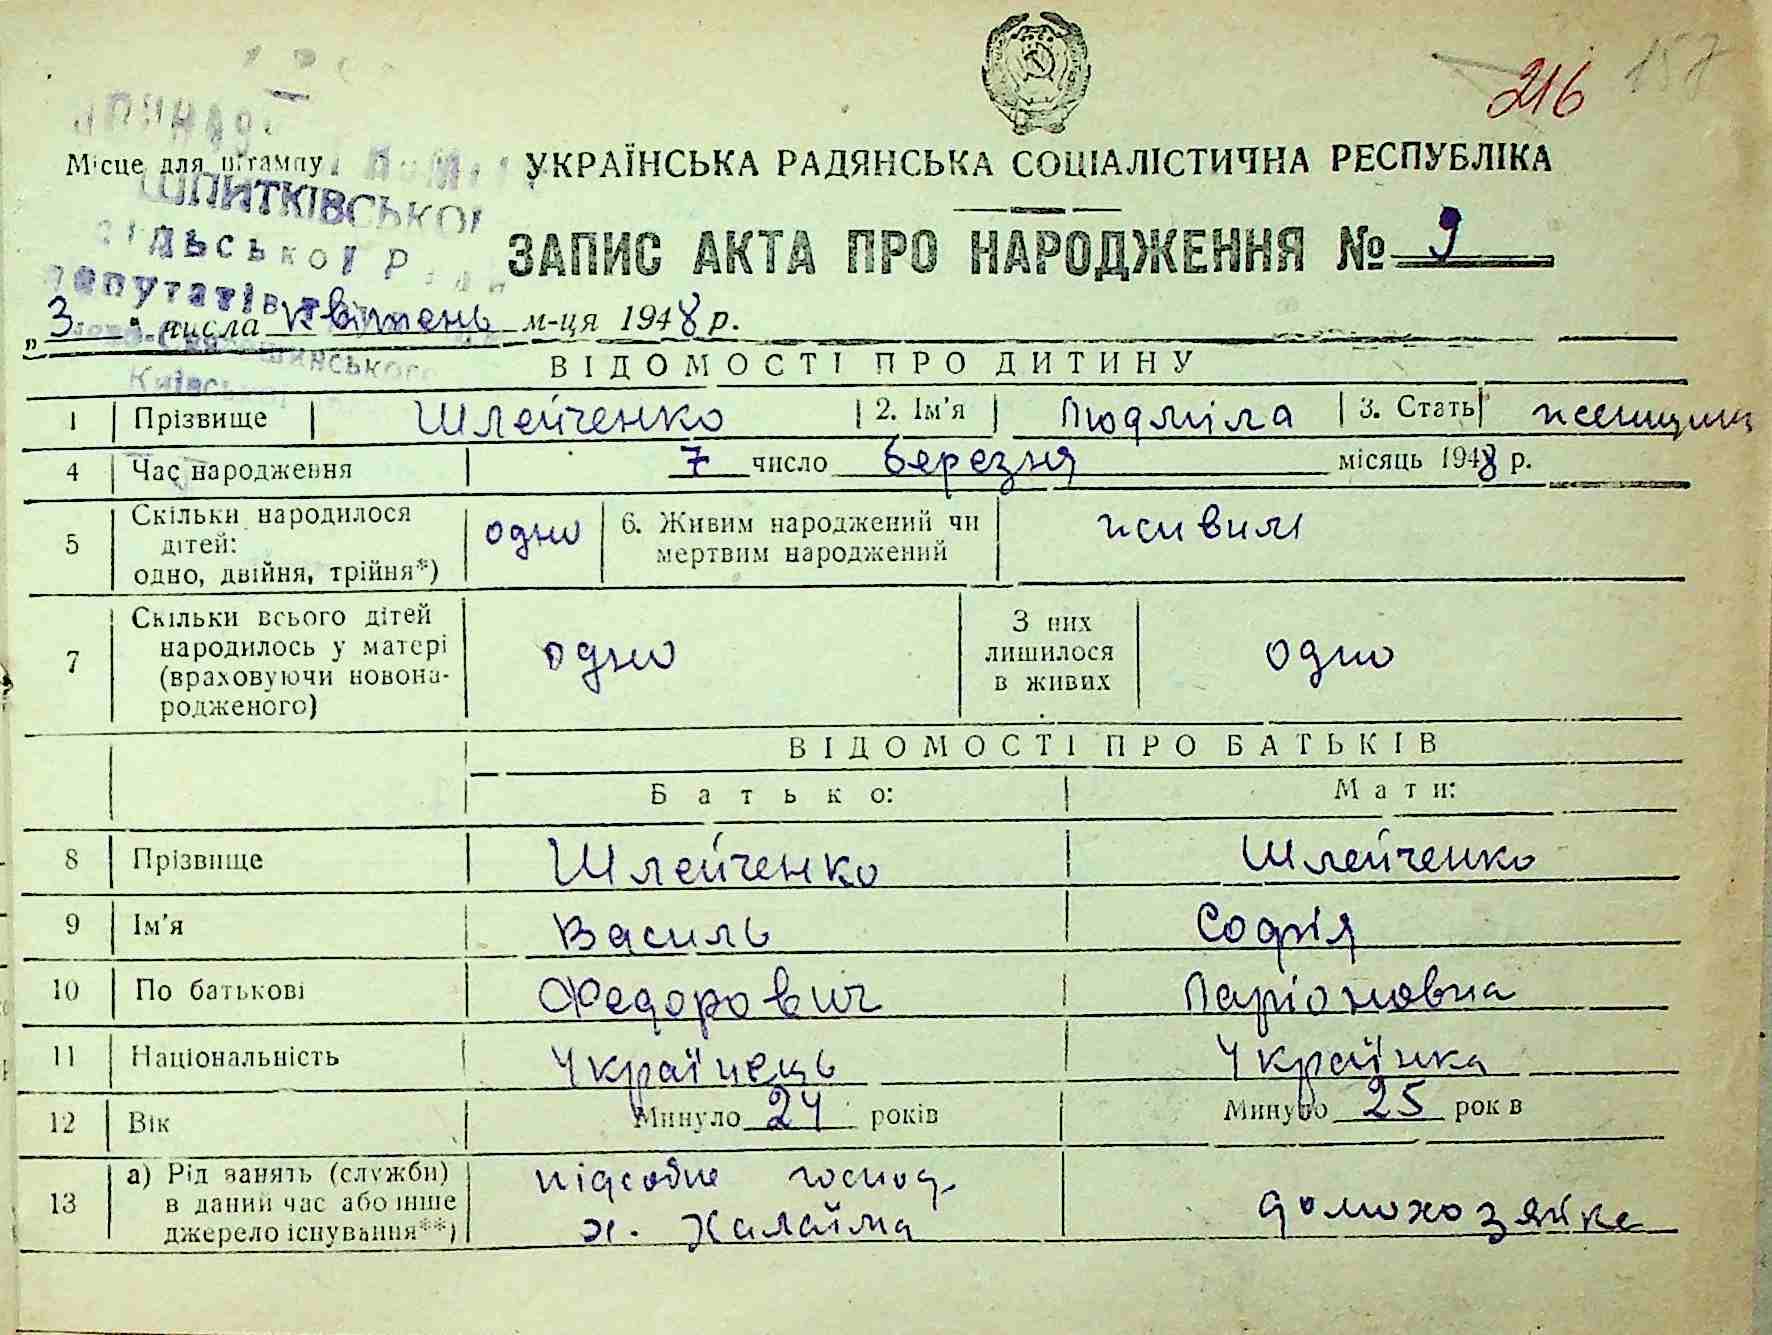 216 157
Місце для штампу
ШПИТКІВСЬКОЇ
УКРАЇНСЬКА РАДЯНСЬКА СОЦІАЛІСТИЧНА РЕСПУБЛІКА
ЗАПИС АКТА ПРО НАРОДЖЕННЯ № 9
„3" числа квітень м-ця 1948 р.
ВІДОМОСТІ ПРО ДИТИНУ
1 Прізвище Шлейченко 2. Ім'я Людміла 3. Стать женщина
4 Час народження 7 число березня місяць 1948 р.
5 Скільки народилося дітей: одно, двійня, трійня*) одно 6. Живим народжений чи мертвим народжений живим
7 Скільки всього дітей народилось у матері (враховуючи новонародженого) одно З них лишилося в живих одно
ВІДОМОСТІ ПРО БАТЬКІВ
Батько: Мати:
8 Прізвище Шлейченко Шлейченко
9 Ім'я Василь Софія
10 По батькові Федорович Ларіоновна
11 Національність Українець Українка
12 Вік Минуло 24 років Минуло 25 рок в
13 а) Рід занять (служби) в даний час або інше джерело існування**) підсобне господ. х. домохозяйка